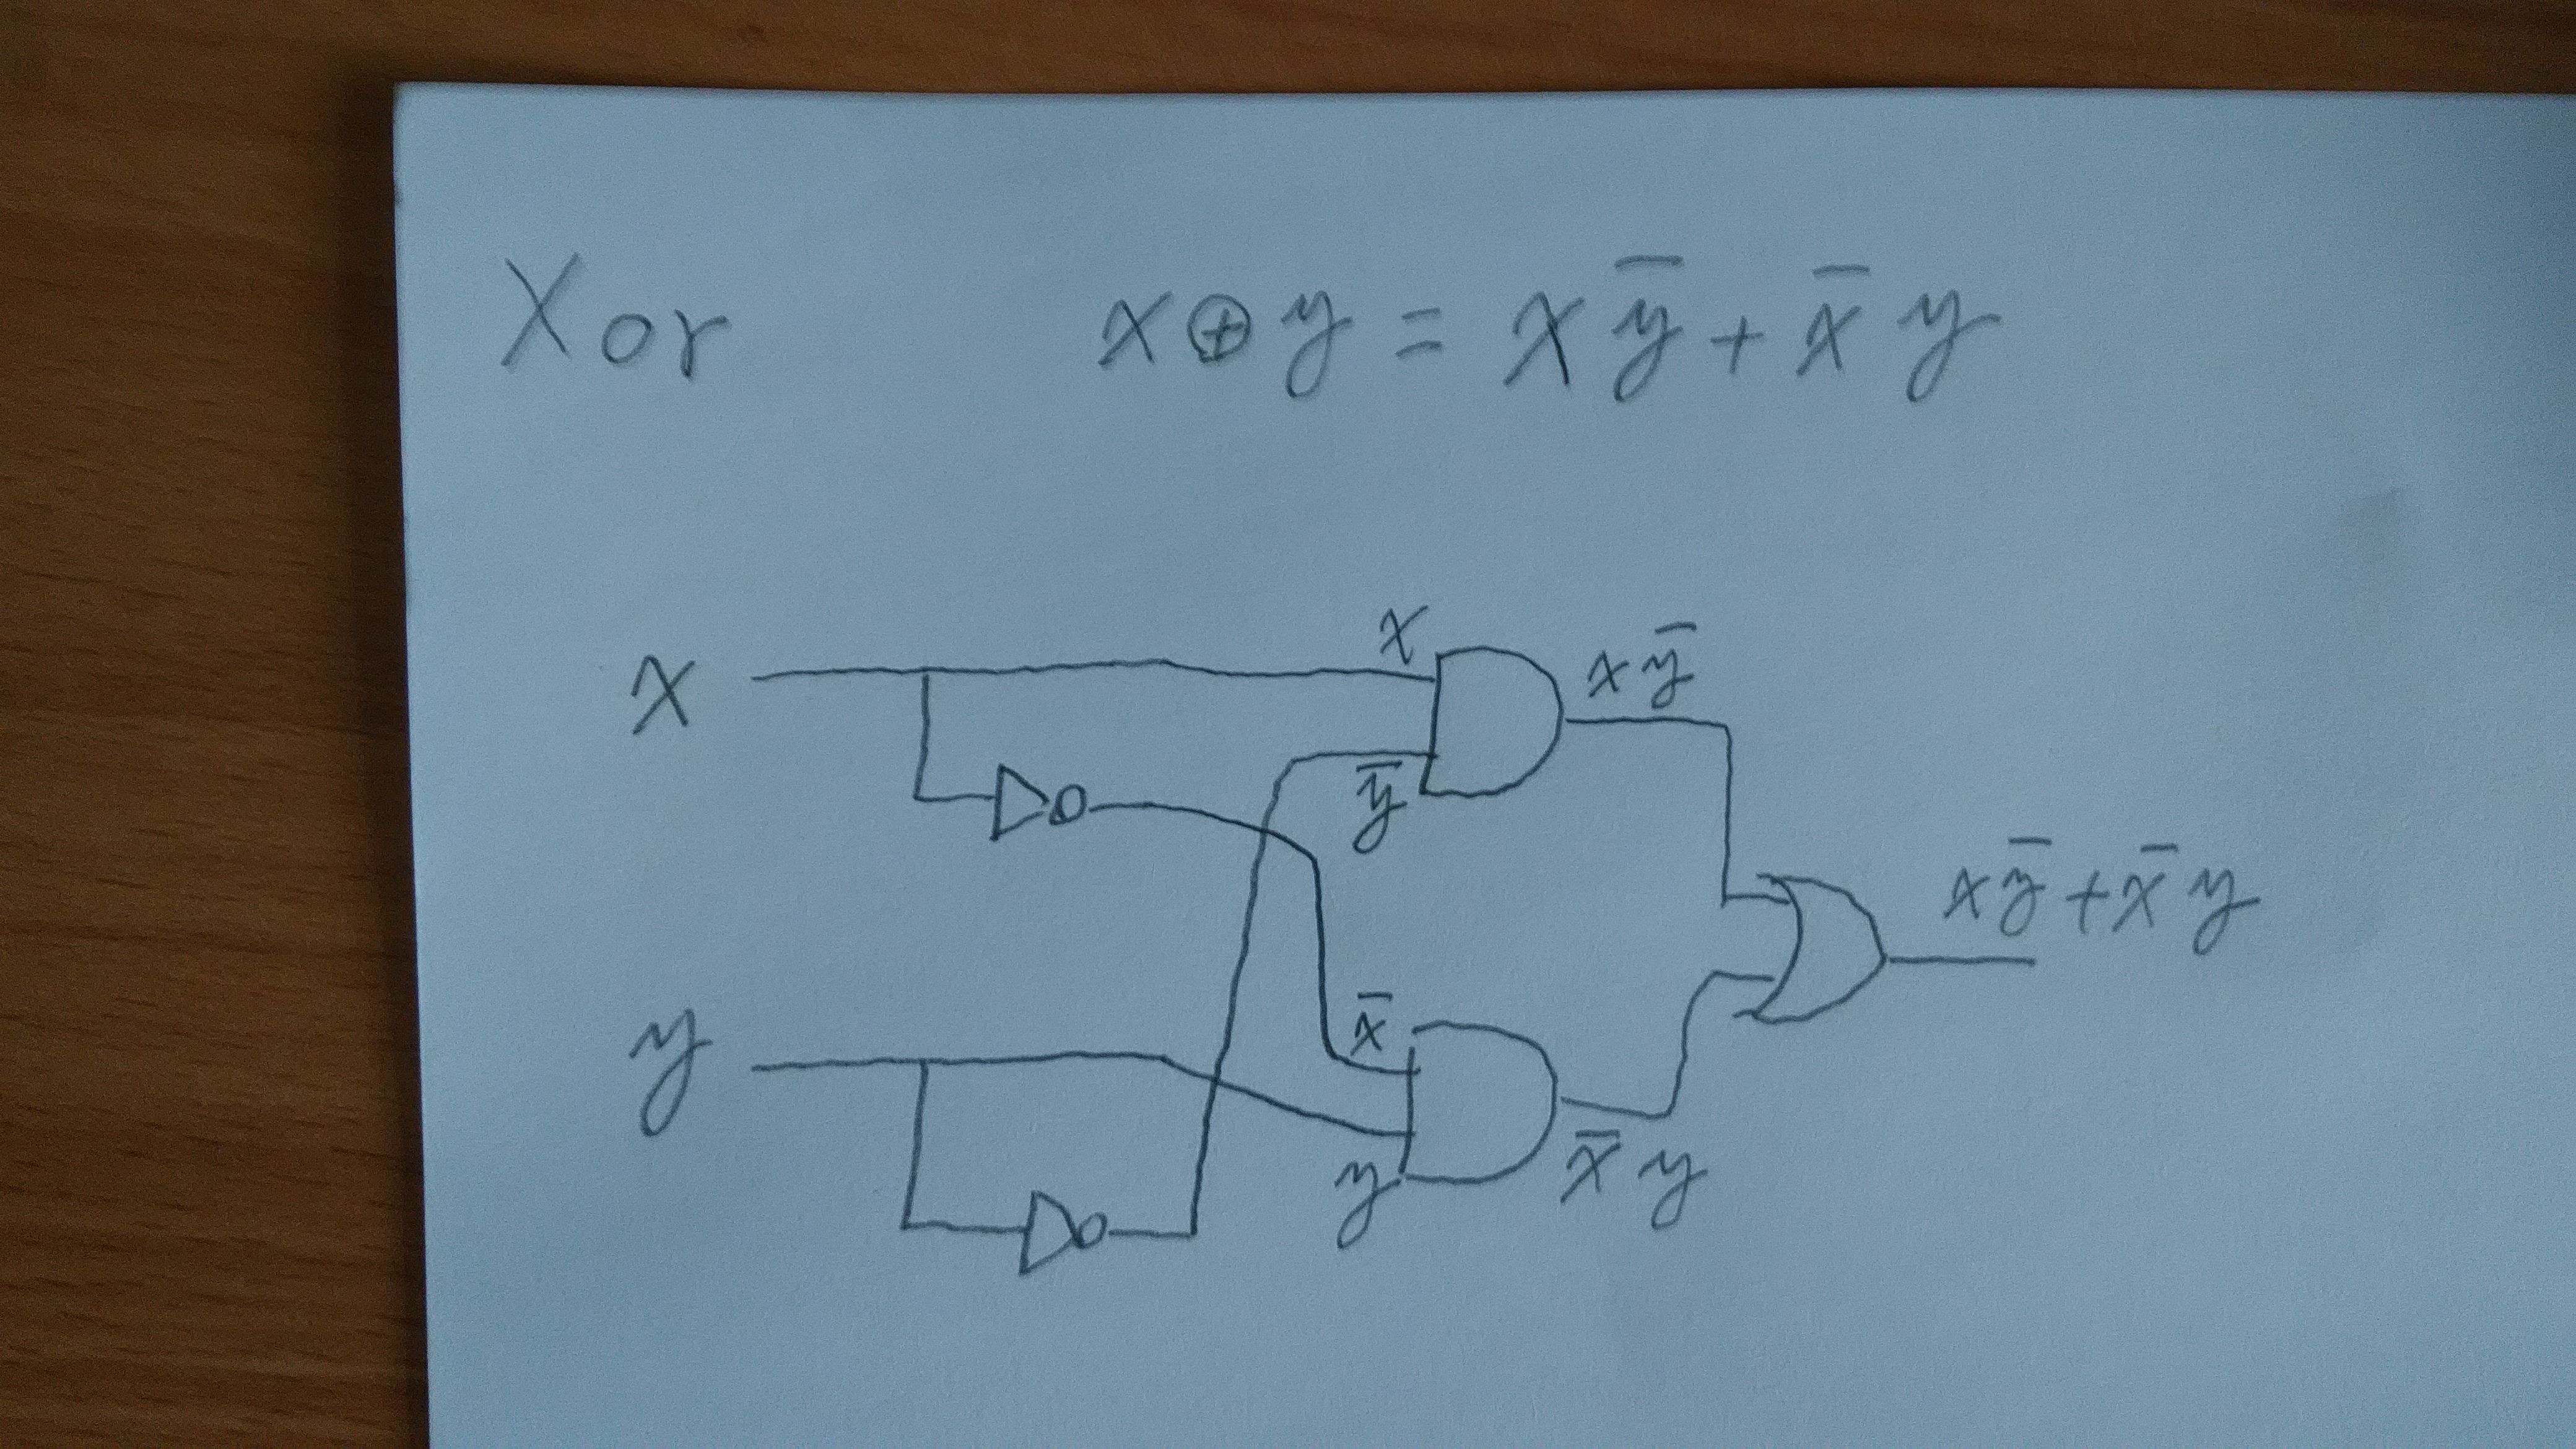 Xor x⊕y = xȳ + x̄y
x
x xȳ
ȳ
xȳ + x̄y
x̄
y
y x̄y